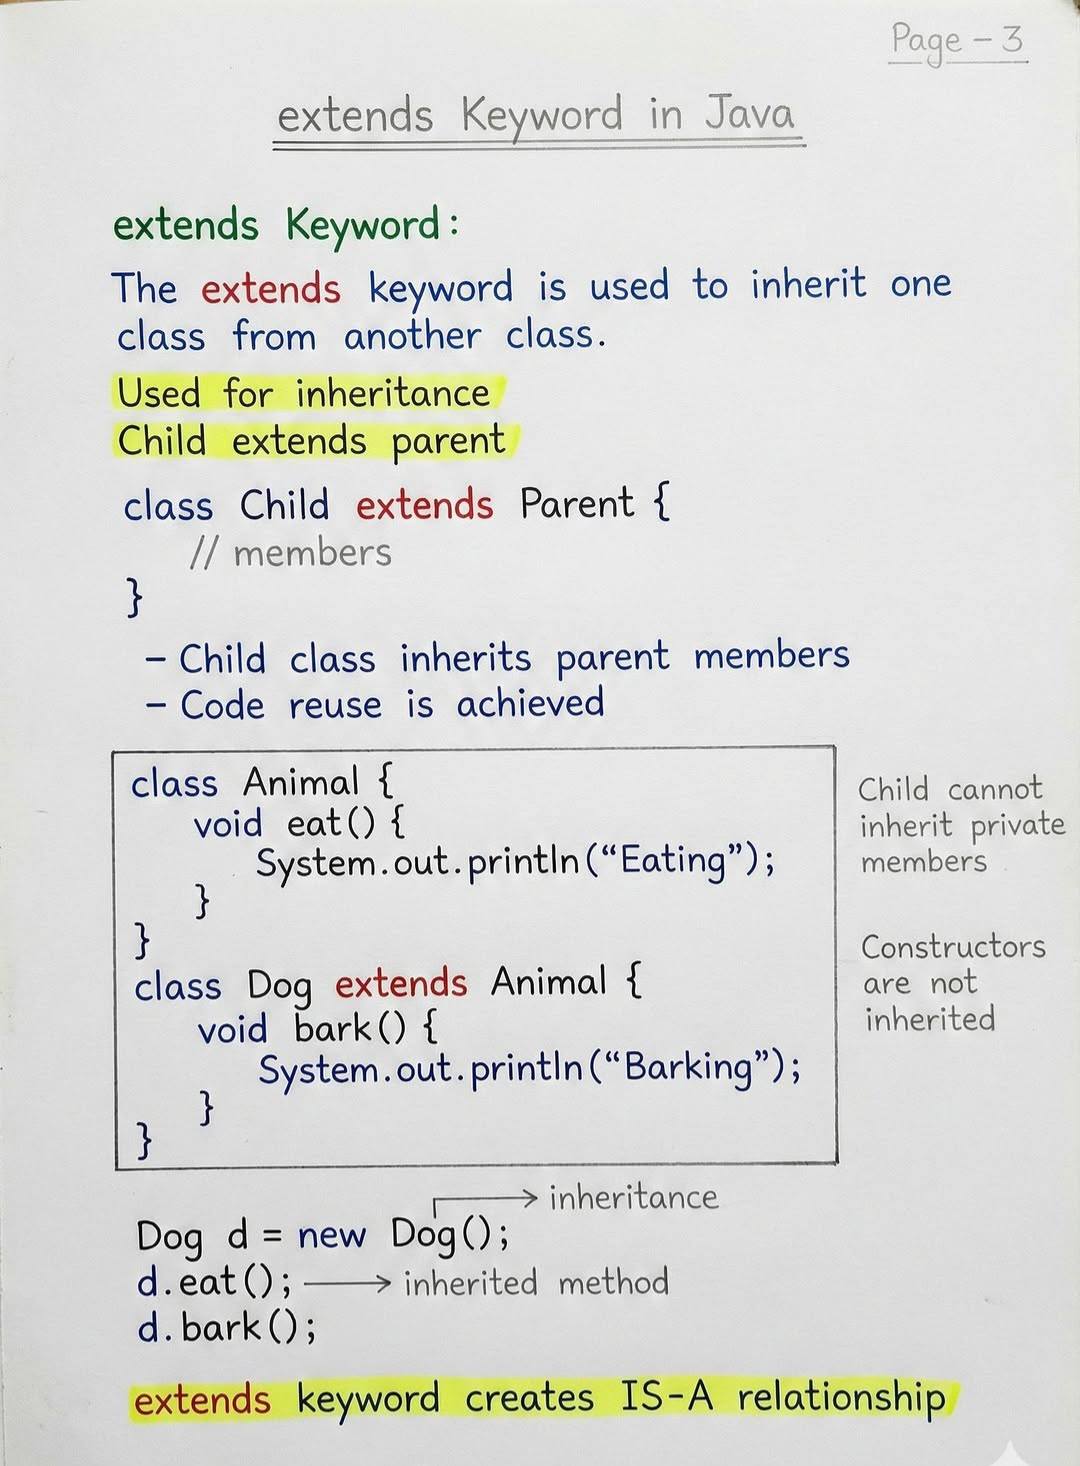 Page - 3
extends Keyword in Java
extends Keyword:
The extends keyword is used to inherit one
class from another class.
Used for inheritance
Child extends parent
class Child extends Parent {
// members
}
- Child class inherits parent members
- Code reuse is achieved
class Animal {
void eat() {
System.out.println(“Eating”);
}
}
class Dog extends Animal {
void bark() {
System.out.println(“Barking”);
}
}
Child cannot
inherit private
members
Constructors
are not
inherited
inheritance
Dog d = new Dog();
d.eat(); → inherited method
d.bark();
extends keyword creates IS-A relationship